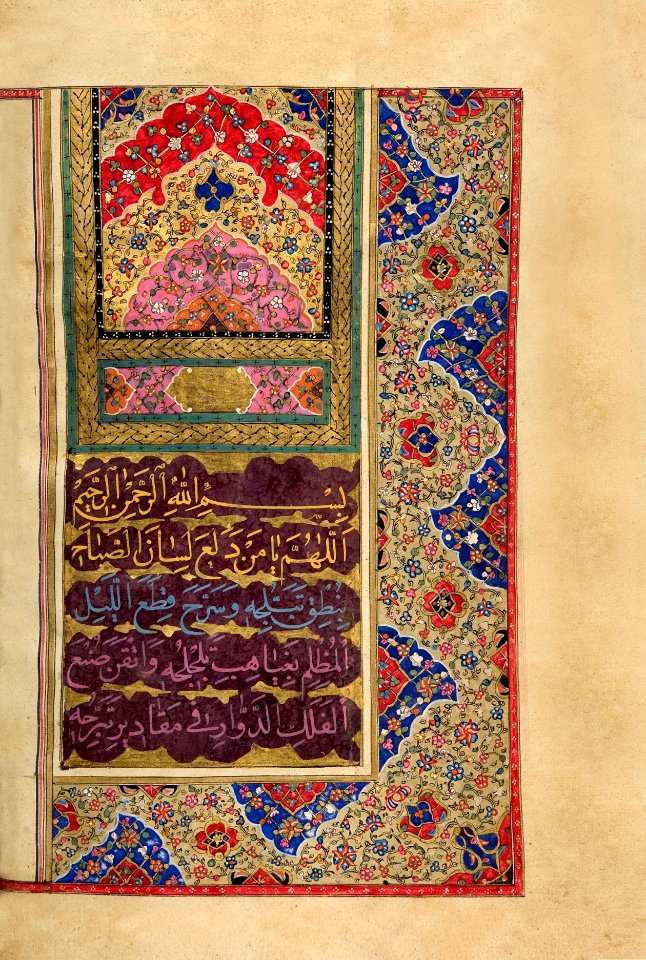 بِسْمِ اللهِ الرَّحْمٰنِ الرَّحِيْمِ
اَللّٰهُمَّ يَا مَنْ دَلَعَ لِسَانَ الصَّبَاحِ
بِنُطْقِ تَبَلُّجِهِ وَسَرَّحَ قِطَعَ اللَّيْلِ
الْمُظْلِمِ بِغَيَاهِبِ تَلَجْلُجِهِ وَاَتْقَنَ صُنْعَ
الْفَلَكِ الدَّوَّارِ فِي مَقَادِيرِ تَبَرُّجِهِ